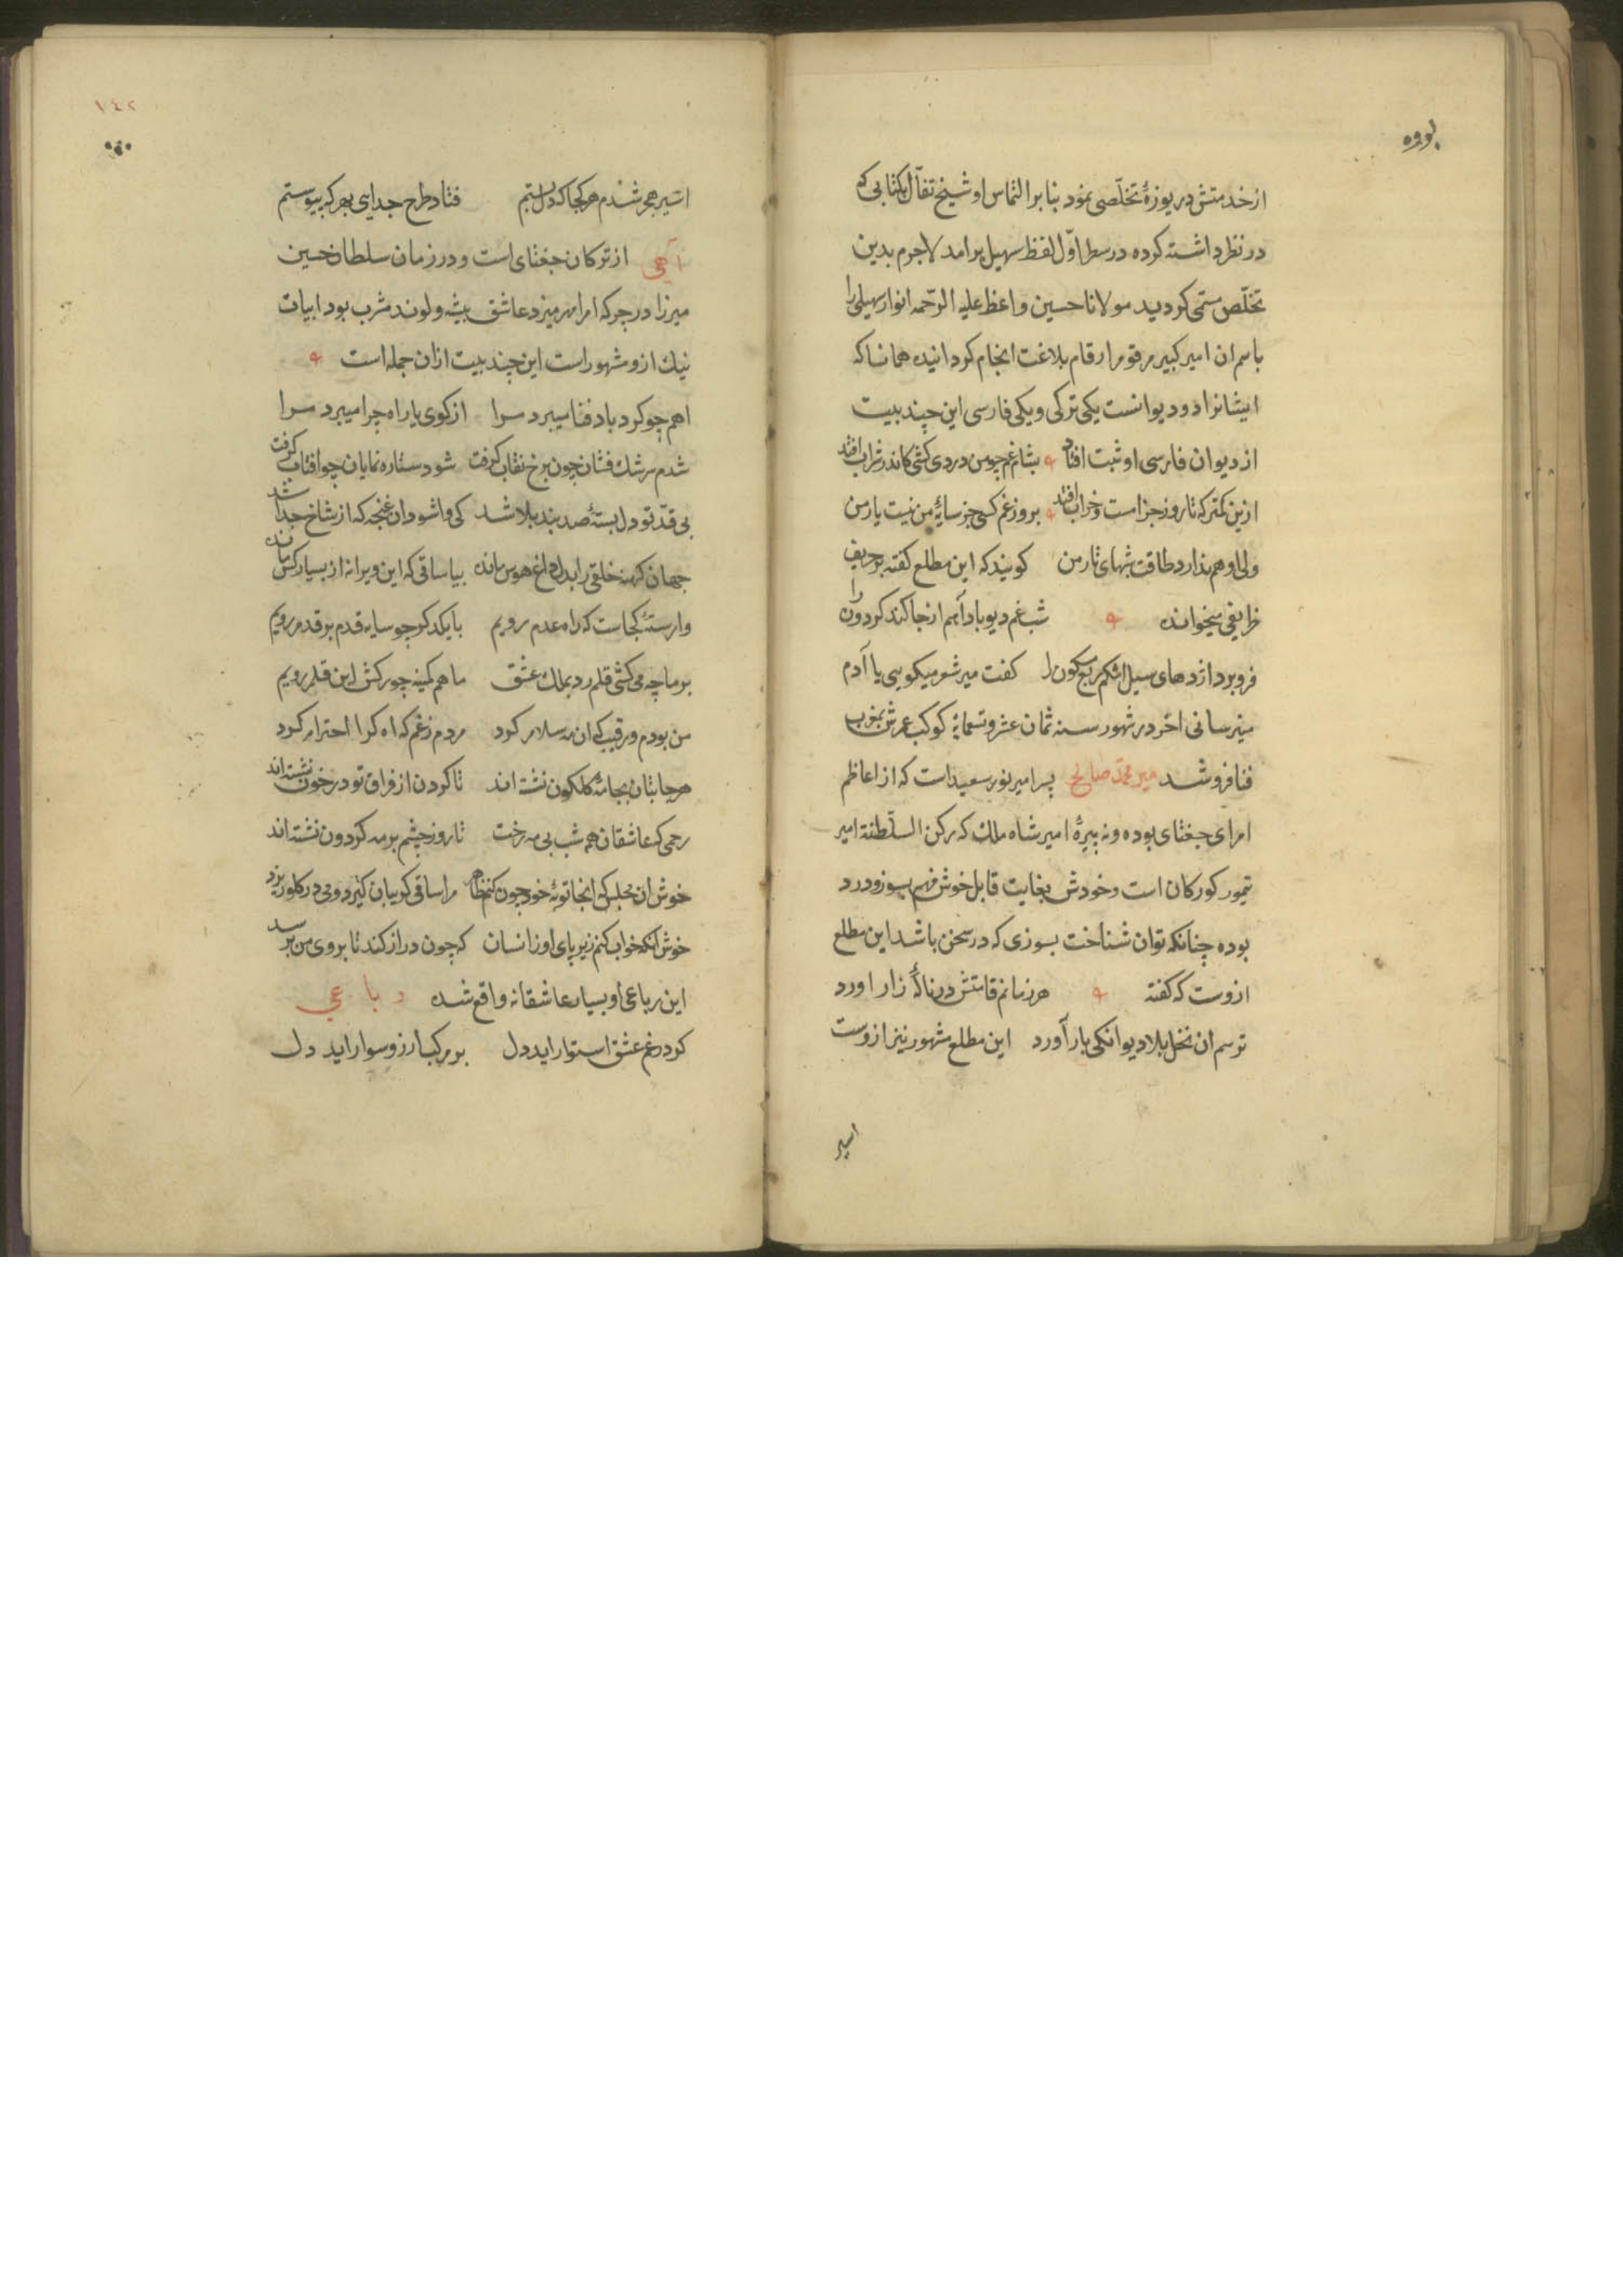 از خدمتش دریوزهٔ تخلّصی نمود بنابر التماس او شیخ تفأّل بکتابی که
در نظر داشته کرده در سطر اوّل لفظ سهیل برامد لاجرم بدین
تخلّص مسمّی کردید مولانا حسین واعظ علیه الرّحمه انوار سهیلی را
باسم ان امیر کبیر مرقوم ارقام بلاغت انجام کردانیده همانا که
ایشانرا دو دیوانست یکی ترکی و یکی فارسی این چند بیت
از دیوان فارسی او ثبت افتاد بشام غم چو من دردی کشی کاندر شراب افتد
ازین کمتر که تا روز جزا مست و خراب افتد بروز غم کسی جز سایهٔ من نیست یار من
ولی او هم ندارد طاقت شبهای تار من کویند که این مطلع کفته بر حریف
ظریفی میخوانده شب غم دیو باد آهم از جا کند کردون را
فرو برد اژدهای سیل اشکم ربع مسکون را کفت میر شعر میکویی یا آدم
میترسانی اخر در شهور سنه ثمان عشر و تسعمایة کوکب عمرش بمغرب
فنا فرو شد میر محمّد صالح پسر امیر نور سعید است که از اعاظم
امرای جغتای بوده و نبیرهٔ امیر شاه ملک که رکن السّلطنة امیر
تیمور کورکان است و خودش بغایت قابل خوش فهم بسوز و درد
بوده چنانکه توان شناخت بسوزی که در سخن باشد این مطلع
ازوست که کفته هر زمانم قامتش در نالهٔ زار اورد
ترسم ان نخل بلا دیوانکی بار آورد این مطلع مشهور نیز ازوست
اسیر
١٤٢
اسیر هجر شدم هر کجا که دل بستم فتاد طرح جدایی بهر که پیوستم
آهی از ترکان جغتای است و در زمان سلطان حسین
میرزا در جرکه امرا بسر میبرد عاشق پیشه و لوند مشرب بود ابیات
نیک ازو مشهور است این چند بیت ازان جمله است
اهم چو کرد باد فنا میبرد مرا از کوی یار اه چرا میبرد مرا
شدم سرشک فشان چون برخ نقاب کرفت شود ستاره نمایان چو افتاب کرفت
بی قدّ تو دل بستهٔ صد بند بلا شد کی وا شود ان غنچه که از شاخ جدا شد
جهان کهنه خلقی را بدل داغ هوس مانده بیا ساقی که این ویرانه از بسیار کس مانده
وارستهٔ کجاست که راه عدم رویم با یکدکر چو سایه قدم بر قدم رویم
بر ما چه می کشی قلم رد بملک عشق ما هم کمینه جور کش این قلمرویم
من بودم و رقیب که ان مه سلام کرد مردم ز غم که اه کرا احترام کرد
هر جا بتان بجامهٔ کلکون نشته اند تا کردن از فراق تو در خون نشته اند
رحمی که عاشقان همه شب بی مه رخت تا روز چشم بر مه کردون نشته اند
خوش ان مجلس که انجا توبهٔ خود چون کنم ظاهر مرا ساقی کریبان کیرد و می در کلو ریزد
خوش انکه خواب کنم زیر پای او زانسان که چون دراز کند تا بروی من برسد
این رباعی او بسیار عاشقانه واقع شده رباعی
کر در غم عشق استوار اید دل بر مرکب ارزو سوار اید دل